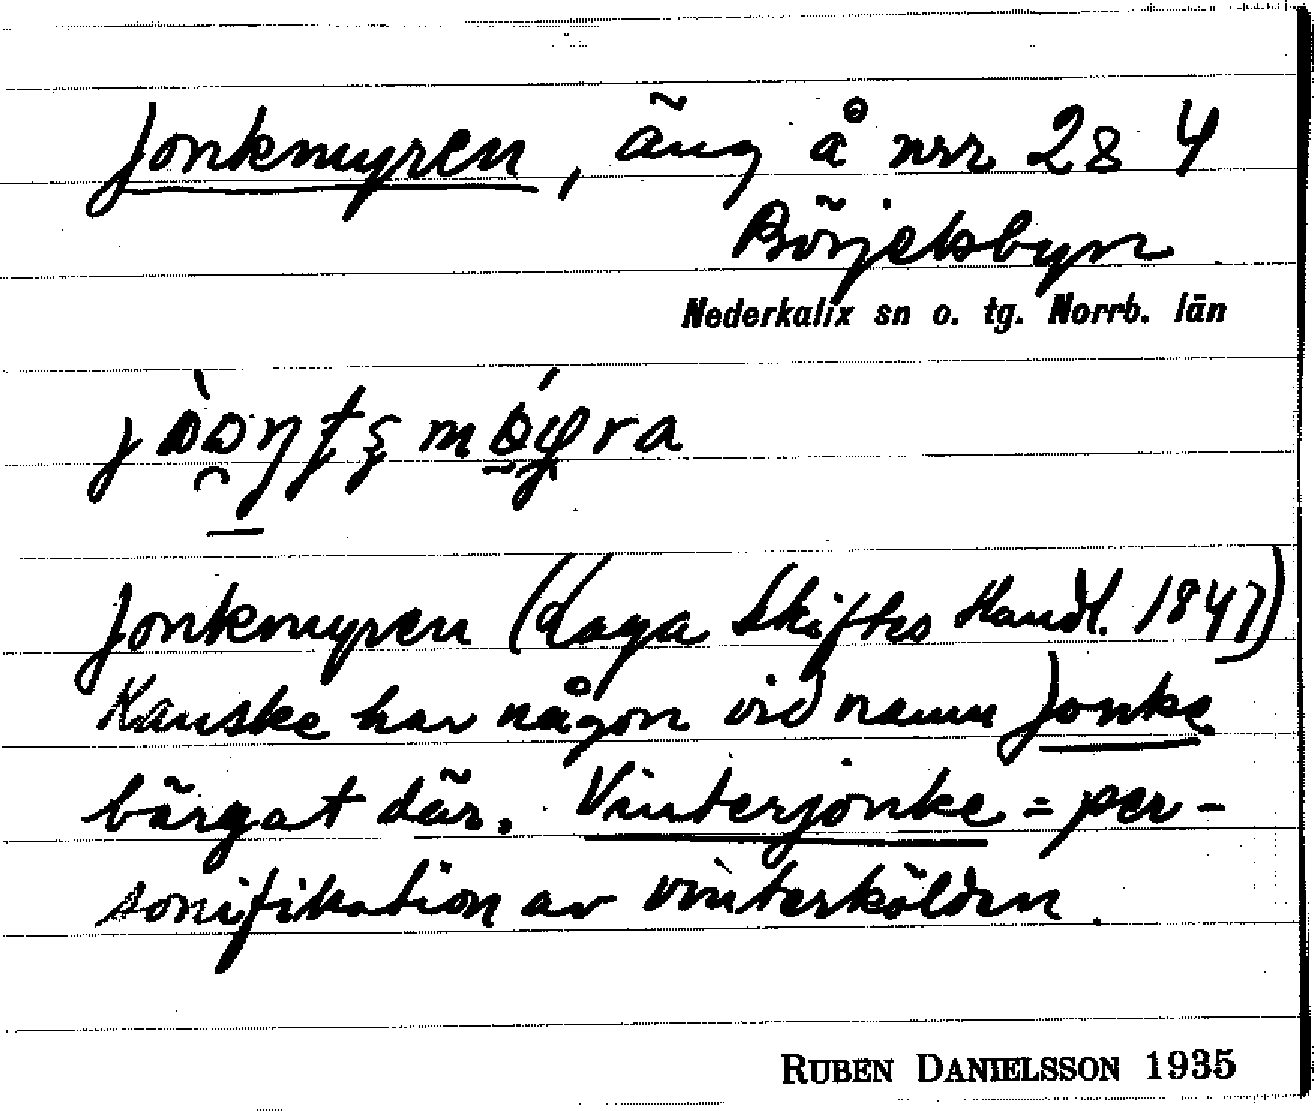 Jonkmyren, äng å nrr 2 8 4
Börjelsbyn
Nederkalix sn o. tg. Norrb. län
Jonkmyren (Laga Skiftes Handl. 1847)
Kanske har någon vid namn Jonke
bärgat där. Vinterjonke = per-
sonifikation av vinterkölden.
RUBEN DANIELSSON 1935